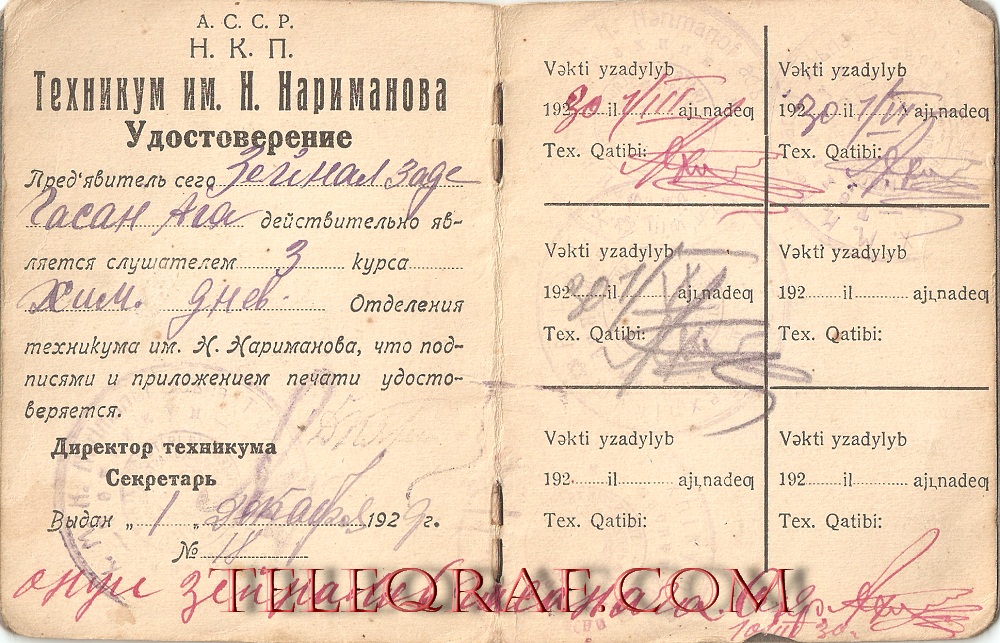 А. С. С. Р.
Н. К. П.
Техникум им. Н. Нариманова
Удостоверение
Пред'явитель сего Зейнал заде
Гасан Ага действительно яв-
ляется слушателем 3 курса
Хим. днев. Отделения
техникума им. Н. Нариманова, что под-
писями и приложением печати удосто-
веряется.
Директор техникума
Секретарь
Выдан „ 1 „ декабря 1929 г.
№ 18
Vəkti yzadylyb
1930 il 1/III ajьnadeq
Tex. Qatibi:
Vəkti yzadylyb
1930 il 1/VI ajьnadeq
Tex. Qatibi:
Vəkti yzadylyb
192 il ajьnadeq
Tex. Qatibi:
Vəkti yzadylyb
192 il ajьnadeq
Tex. Qatibi:
Vəkti yzadylyb
192 il ajьnadeq
Tex. Qatibi:
Vəkti yzadylyb
192 il ajьnadeq
Tex. Qatibi:
TELEQRAF.COM